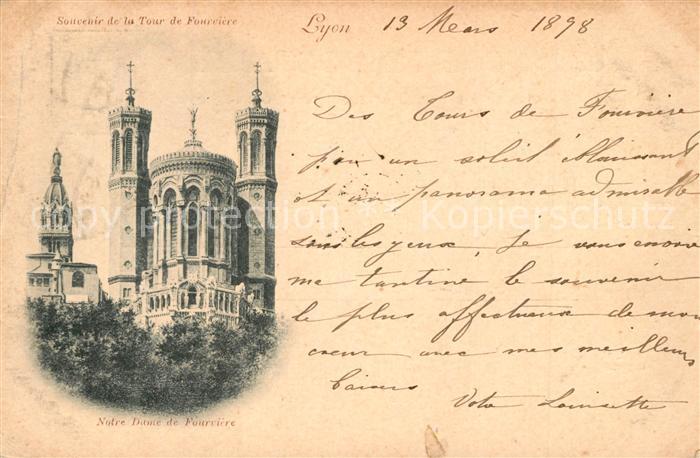 Souvenir de la Tour de Fourvière
Lyon 13 Mars 1898
Des Tours de Fourvière
par un soleil éblouissant
et un panorama admirable
sous les yeux, Je vous envoie
ma tantine le souvenir
le plus affectueux de mon
cœur avec mes meilleurs
baisers
Votre Louisette
Notre Dame de Fourvière
copy protection ** Kopierschutz